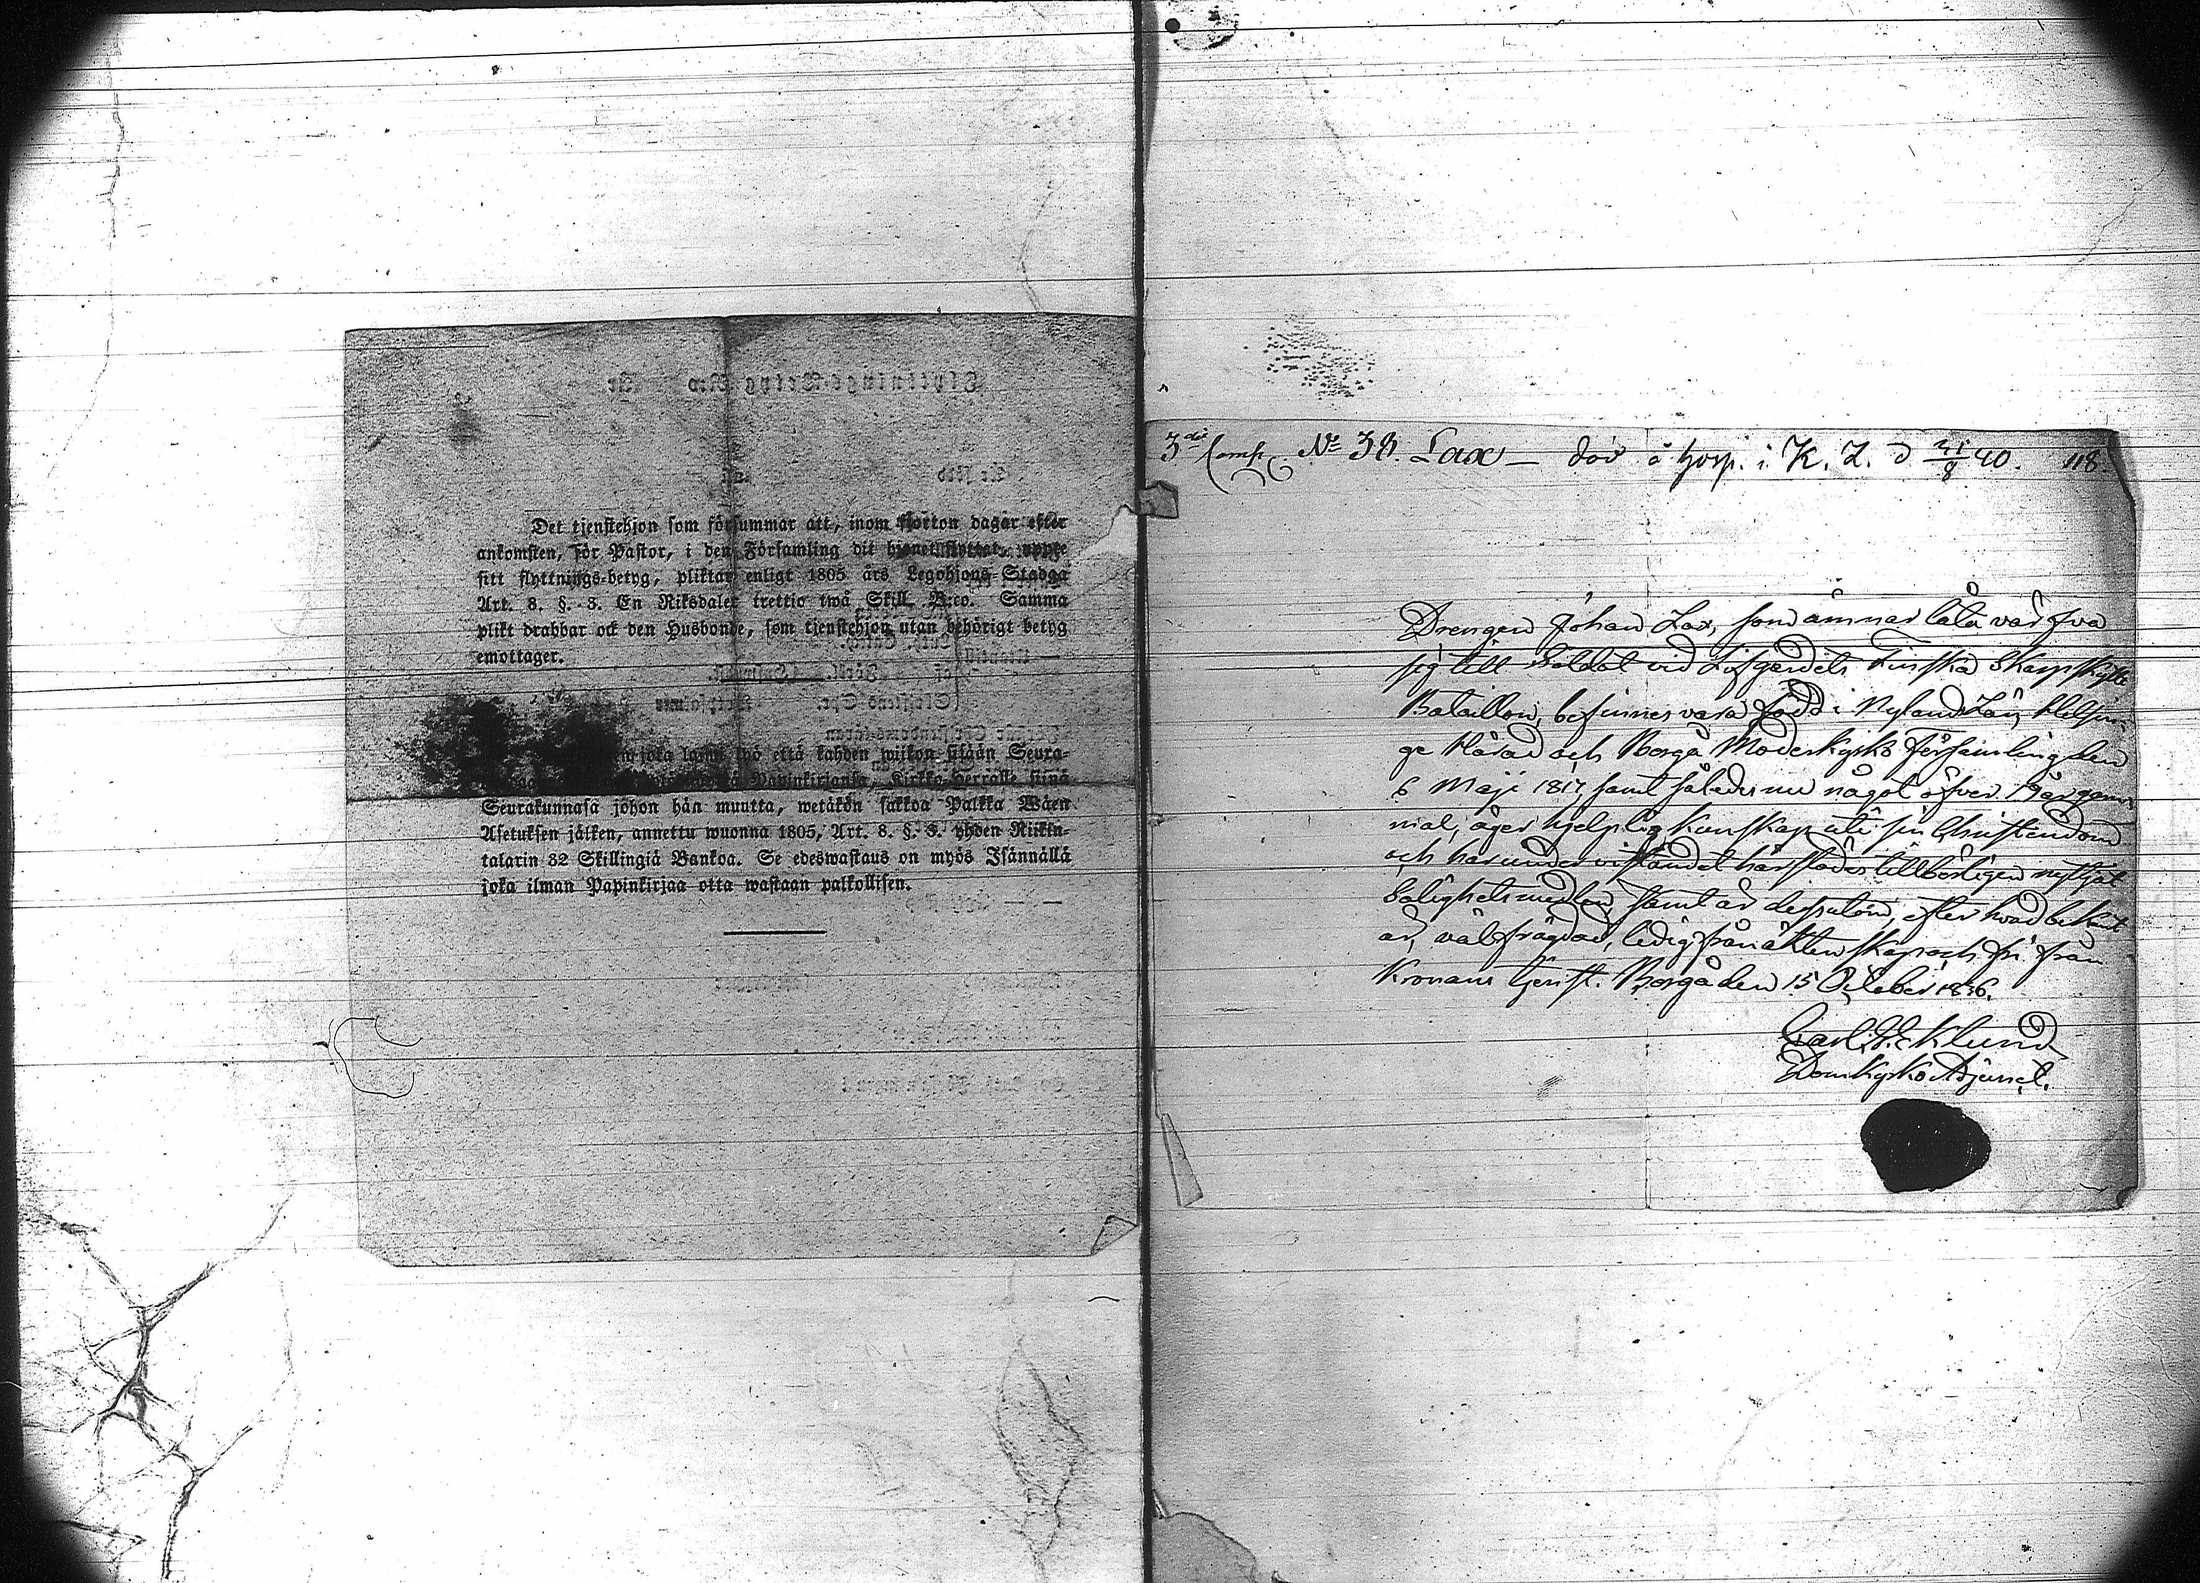 Det tjenstehjon som försummar att, inom fjorton dagar efter
ankomsten, för Pastor, i den Församling dit hjonet flyttat, uppte
sitt flyttnings-betyg, pliktar enligt 1805 års Legohjons-Stadga
Art. 8. §. 3. En Riksdaler trettio twå Skill. B:co. Samma
plikt drabbar ock den Husbonde, som tjenstehjon utan behörigt betyg
emottager.
joka lyö että kahden wiikon sisään Seura-
Papinkirjansa, Kirkko-Herralle siinä
Seurakunnasa johon hän muutta, wetäkön sakkoa Palkka Wäen
Asetuksen jälken, annettu wuonna 1805, Art. 8. §. 3. yhden Riikin-
talarin 32 Skillingiä Bankoa. Se edeswastaus on myös Isännällä
joka ilman Papinkirjaa otta wastaan palkollisen.
3die Comp. No 38. Lax — död å hosp. i K. Z. d 21/8 40. 118.
Drengen Johan Lax, som ämnar låta värfva
sig till Soldat vid Lifgardets Finska Skarpskytte
Bataillon, befinnes vara född i Nylands Län, Helsin-
ge Härad och Borgå Moderkyrko Församling den
6 Maji 1817 samt således nu något öfver 19 år gam-
mal, äger hjelplig kunskap uti sin Christendom
och har under vistandet härstädes tillbörligen nyttjat
Salighetsmedlen, samt är dessutom, efter hvad bekant
är, välfrägdad, ledig från äktenskap och fri från
Kronans tjenst. Borgå den 15 October 1836.
Carl H. Eklund
Domkyrko Adjunct.